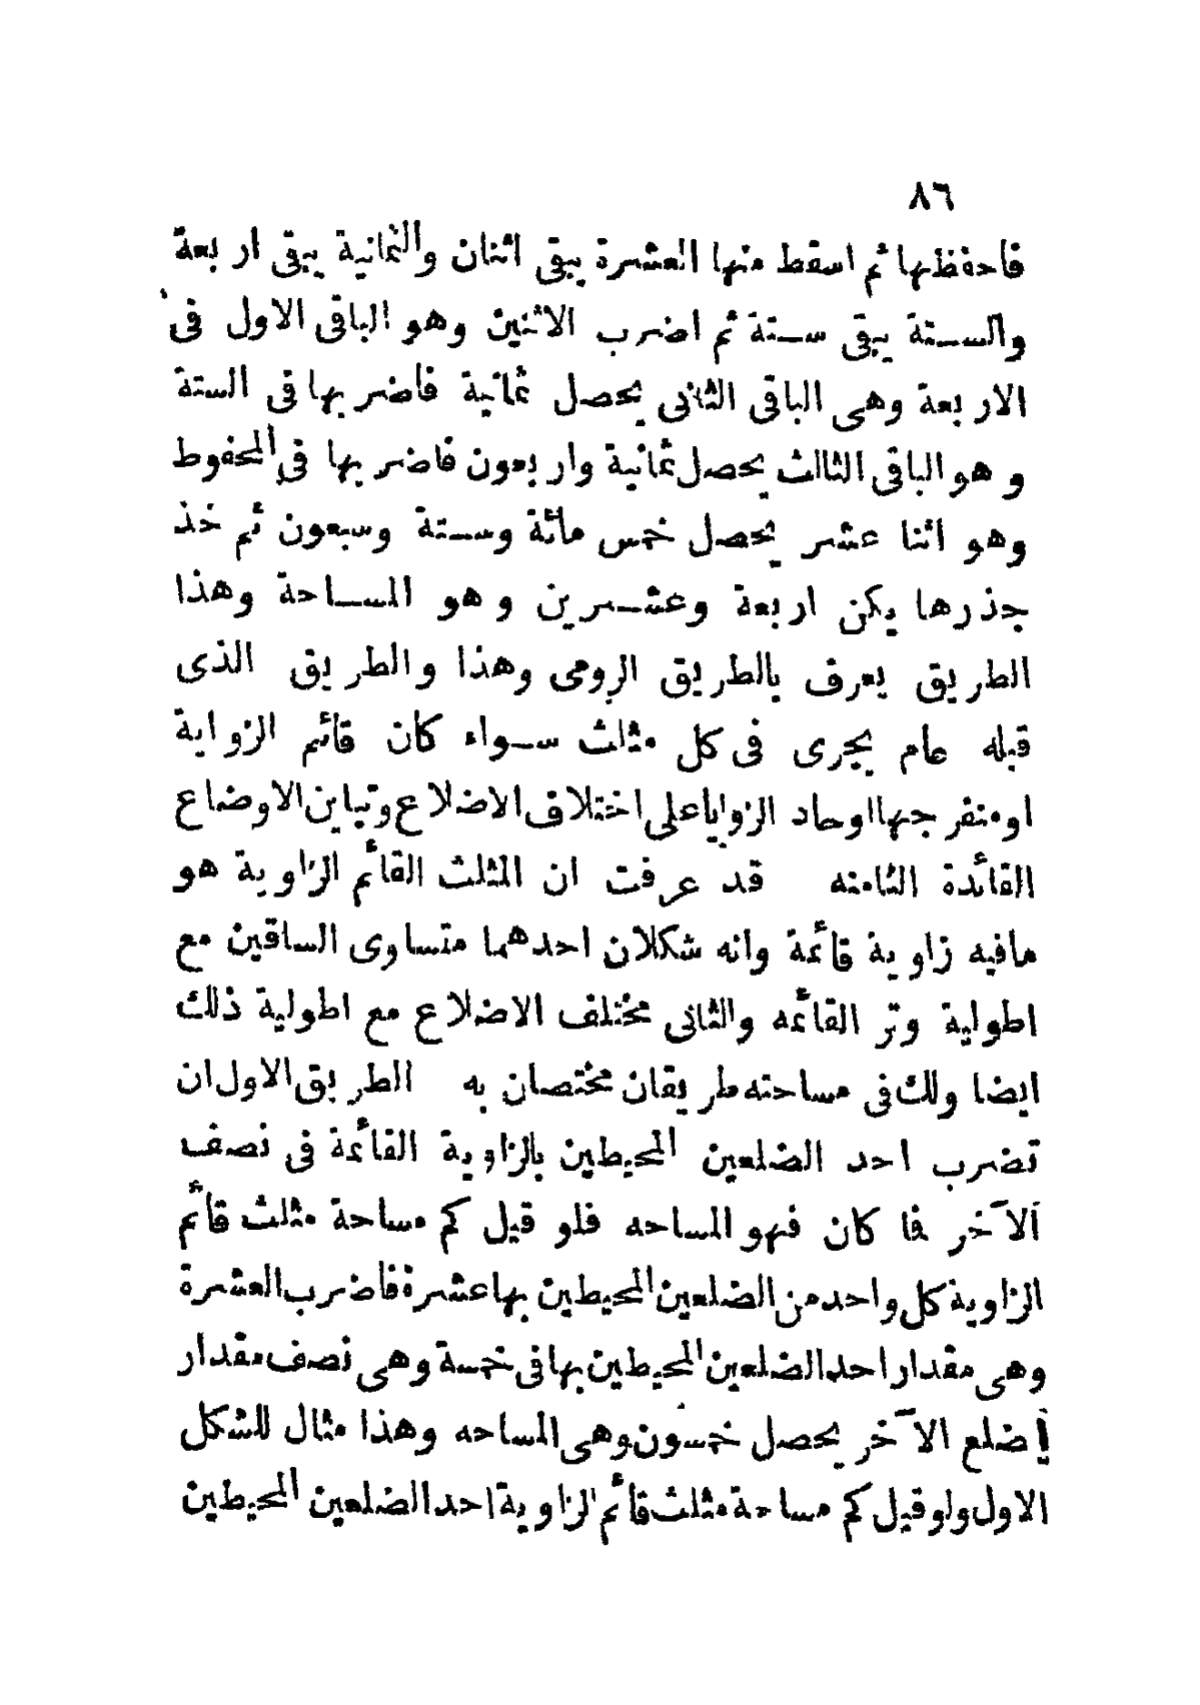 ٨٦
فاحفظها ثم اسقط منها العشرة يبقى اثنان والثمانية يبقى اربعة
والستة يبقى ستة ثم اضرب الاثنين وهو الباقى الاول فى
الاربعة وهى الباقى الثانى يحصل ثمانية فاضربها فى الستة
وهو الباقى الثالث يحصل ثمانية واربعون فاضربها فى المحفوظ
وهو اثنا عشر يحصل خمس مائة وستة وسبعون ثم خذ
جذرها يكن اربعة وعشرين وهو المساحة وهذا
الطريق يعرف بالطريق الرومى وهذا والطريق الذى
قبله عام يجرى فى كل مثلث سواء كان قائم الزواية
اومنفرجها اوحاد الزوايا على اختلاف الاضلاع وتباين الاوضاع
القائدة الثامنه قد عرفت ان المثلث القائم الزاوية هو
مافيه زاوية قائمة وانه شكلان احدهما متساوى الساقين مع
اطولية وتر القائمه والثانى مختلف الاضلاع مع اطولية ذلك
ايضا ولك فى مساحته طريقان مختصان به الطريق الاول ان
تضرب احد الضلعين المحيطين بالزاوية القائمة فى نصف
الآخر فما كان فهو المساحه فلو قيل كم مساحة مثلث قائم
الزاوية كل واحد من الضلعين المحيطين بها عشرة فاضرب العشرة
وهى مقدار احد الضلعين المحيطين بها فى خمسة وهى نصف مقدار
اضلع الآخر يحصل خمسون وهى المساحه وهذا مثال للشكل
الاول ولو قيل كم مساحة مثلث قائم الزاوية احد الضلعين المحيطين